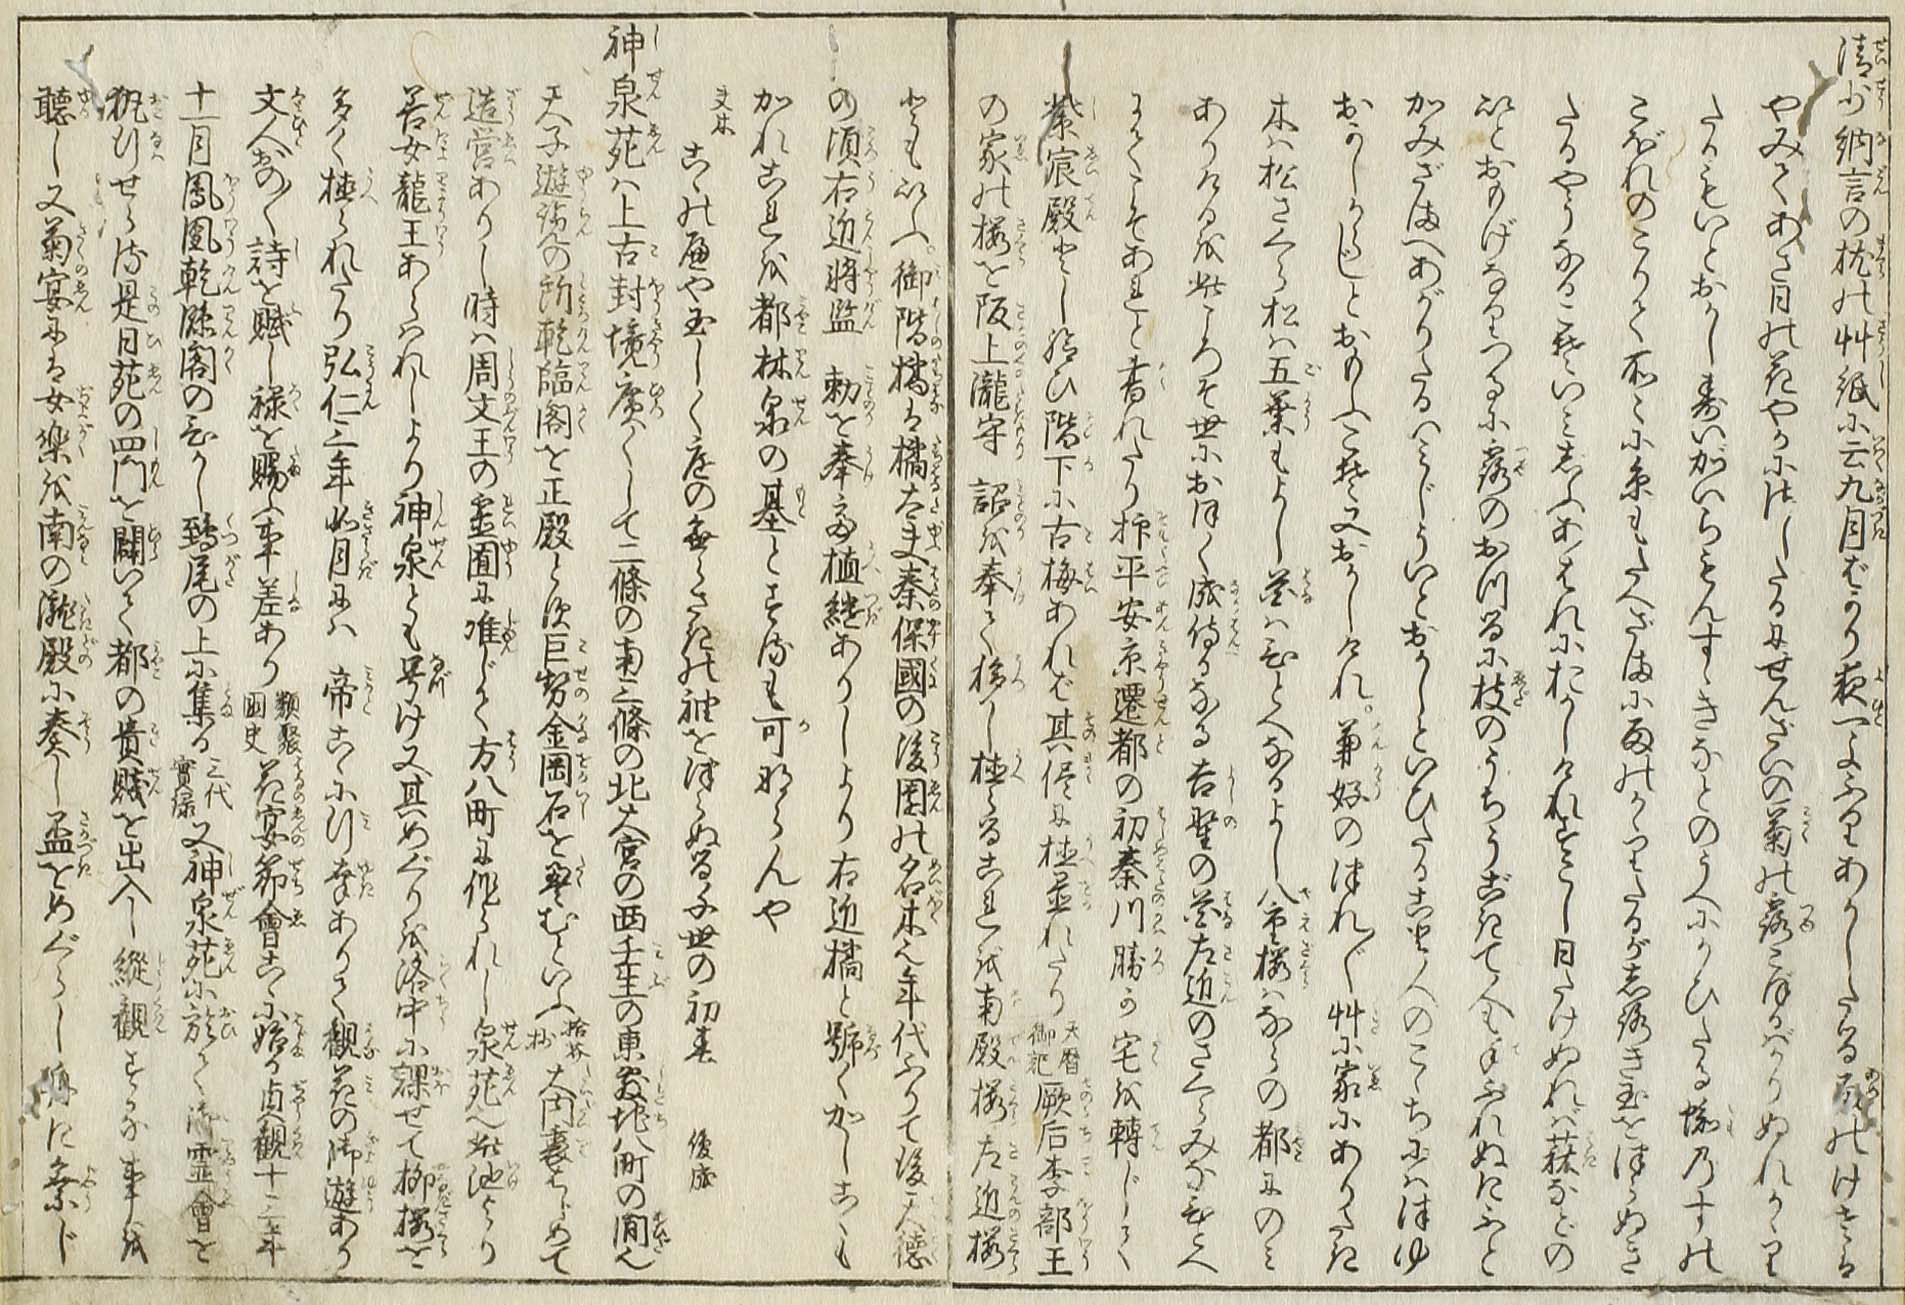 清少納言の枕の艸紙に云九月ばかり夜一よふりあかしたる雨のけさは
やみてあさ日の花やかにさしたるにせんざいの菊の露こぼるばかりぬれかゝり
たるもいとおかしすいがいらもんすゝきなどのうへにかひたる蛛のすの
こぼれのこりて所々に糸もたえざまに雨のかゝりたるが白き玉をつらぬき
たるやうなるこそいみじふあはれにおかしけれすこし日たけぬれば萩などの
いとおもげなりつるに露のおつるに枝のうちうごきて人も手ふれぬにふと
かみざまへあがりたるいみじういとおかしといひたること人のこゝちにはつゆ
おかしからじとおもふこそ又おかしけれ。兼好のつれ〴〵艸に家にありたき
木は松さくら松は五葉もよし花はひとへなるよし八重桜はならの都にのみ
ありけるを此ころぞ世におほく成侍るなる吉野の花左近のさくらみなひとへ
にてこそあれと書れたり抑平安京遷都の初秦川勝の宅を轉じて
紫宸殿とし給ひ階下に古梅あれば其侭に植置れたり 天暦御記 厥后李部王
の家の桜を阪上瀧守 詔を奉て移し植らるこれを南殿桜左近桜
ともいふ。御階橘は橘大夫秦保國の後園の名木也年代ふりて後天徳
の頃右近將監 勅を奉而植継ありしより右近橘と號くかしこくも
かれこれを都林泉の基とするも可ならんや
夫木 こゝの重や玉しく庭のむらさきの袖をつらぬる千世の初春 俊成
神泉苑は上古封境廣くして二條の南三條の北大宮の西壬生の東方八町の間也
天子遊覧の所乾臨閣を正殿とす巨勢金岡石を畳むといふ 拾芥抄 大内裏はじめて
造営ありし時は周文王の霊囿に准じて方八町に作られし泉苑へ此池より
善女龍王あらはれしより神泉とも号け又其めぐりを洛中に課せて柳桜を
多く植られたり弘仁三年如月には 帝こゝに行幸ありて観花の御遊あり
文人おの〳〵詩を賦し禄を賜ふ事差あり 類聚國史 花宴節會こゝに始る貞観十三年
十一月鳳凰乾臨閣のひがし鵄尾の上に集る 三代實録 又神泉苑に於て御霊會を
執行せらる是日苑の四門を開いて都の貴賤を出入し縦観する事を
聴し又菊宴には女樂を南の瀧殿に奏し盃をめぐらし